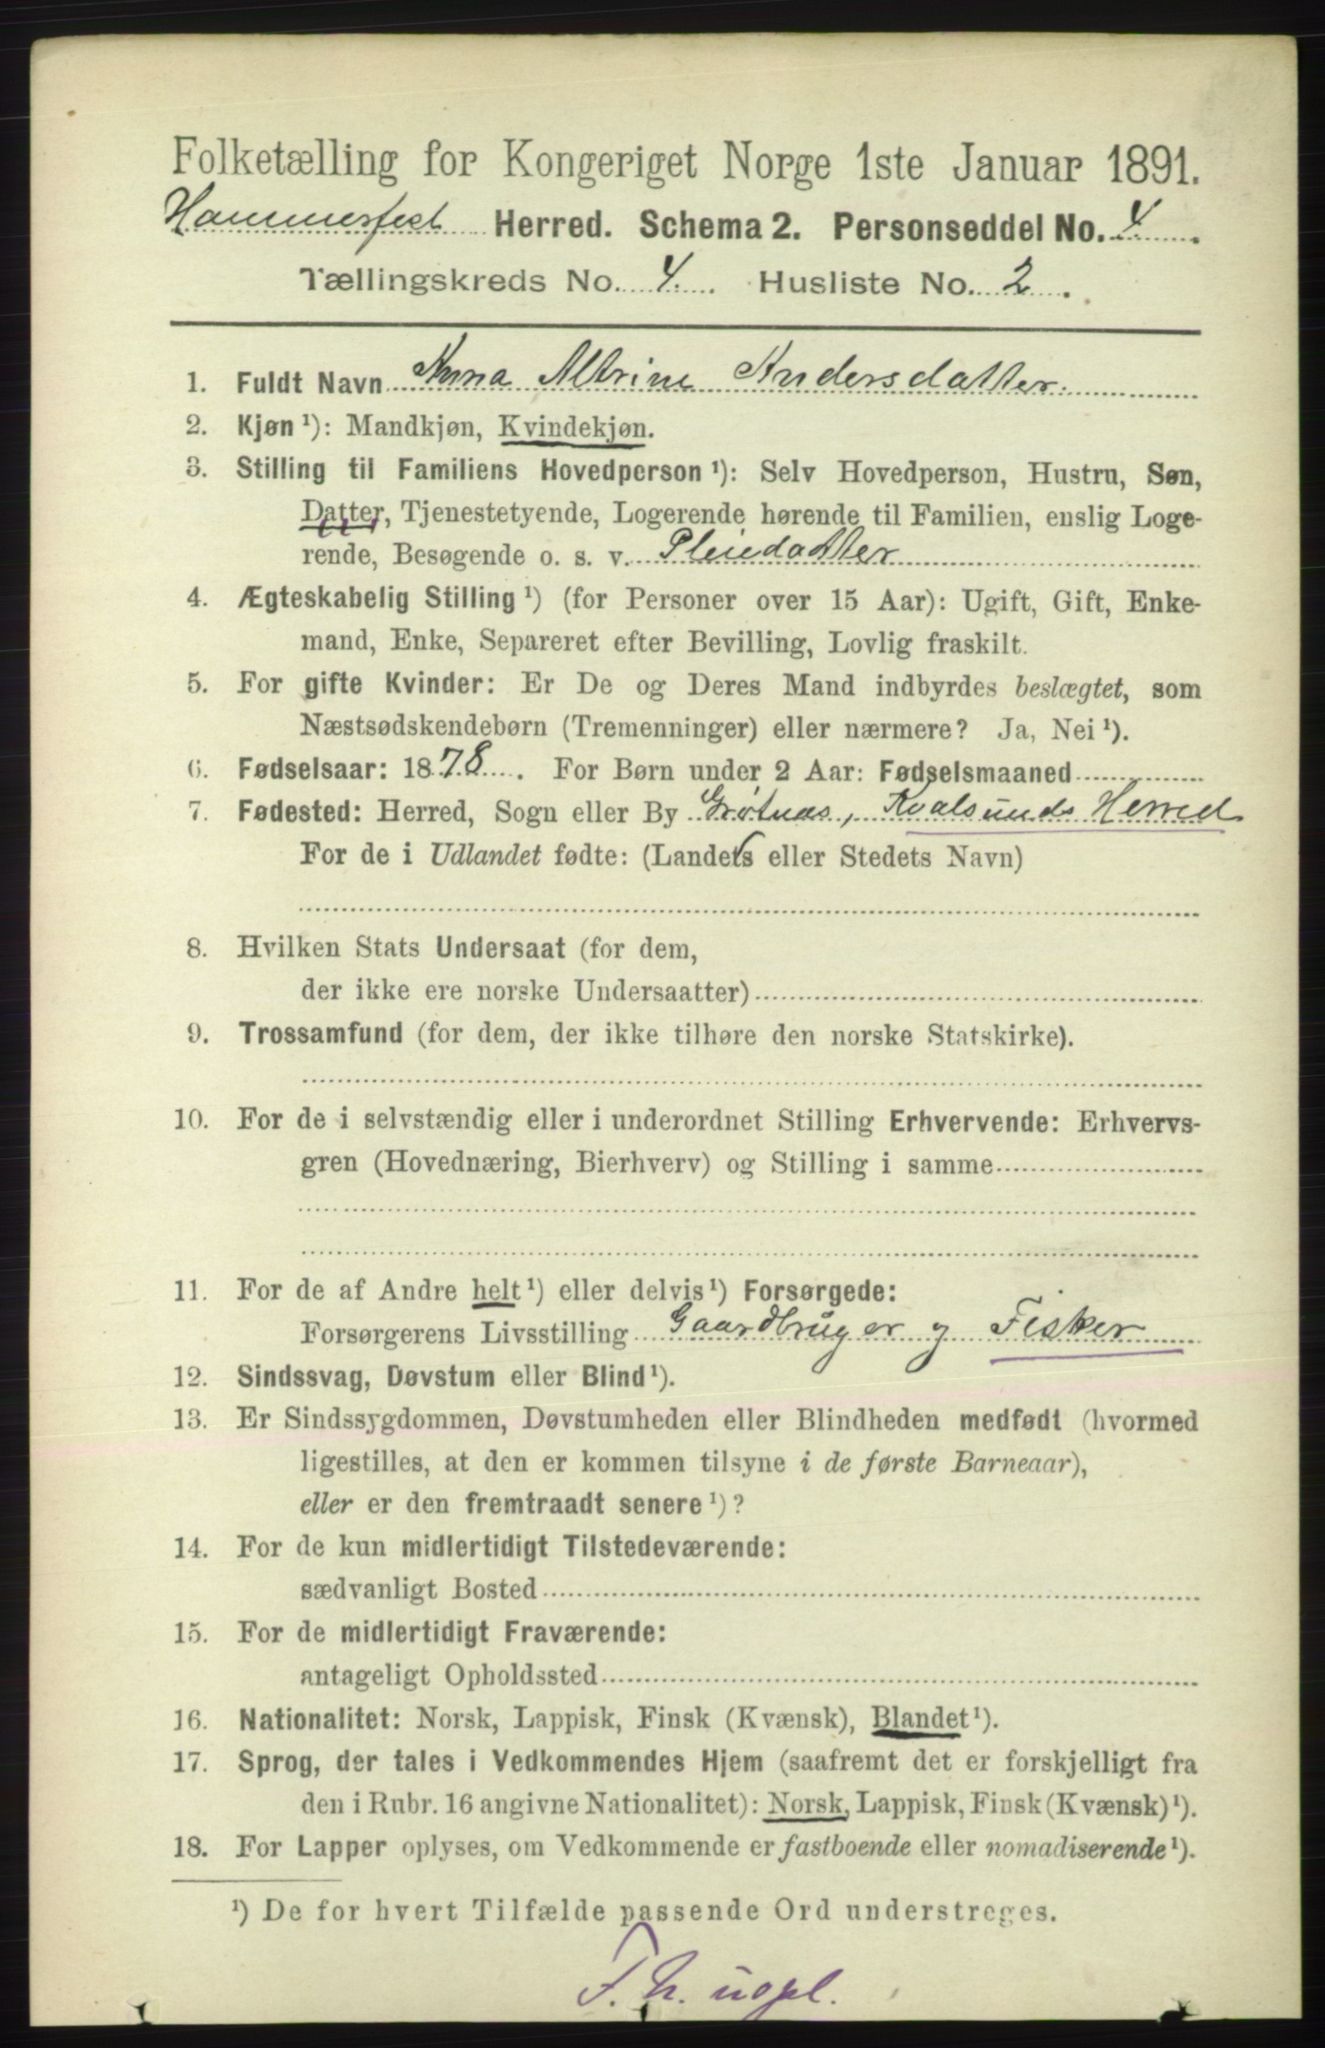 Folketælling for Kongeriget Norge 1ste Januar 1891.
Hammerfest Herred. Schema 2. Personseddel No. 4.
Tællingskreds No. 4. Husliste No. 2.
1. Fuldt Navn Anna Altrine Andersdatter.
2. Kjøn ¹): Mandkjøn, Kvindekjøn.
3. Stilling til Familiens Hovedperson ¹): Selv Hovedperson, Hustru, Søn,
Datter, Tjenestetyende, Logerende hørende til Familien, enslig Loge-
rende, Besøgende o. s. v. Pleiedatter
4. Ægteskabelig Stilling ¹) (for Personer over 15 Aar): Ugift, Gift, Enke-
mand, Enke, Separeret efter Bevilling, Lovlig fraskilt.
5. For gifte Kvinder: Er De og Deres Mand indbyrdes beslægtet, som
Næstsødskendebørn (Tremenninger) eller nærmere? Ja, Nei ¹).
6. Fødselsaar: 1878. For Børn under 2 Aar: Fødselsmaaned
7. Fødested: Herred, Sogn eller By Grøtnæs, Kvalsunds Herred
For de i Udlandet fødte: (Landets eller Stedets Navn)
8. Hvilken Stats Undersaat (for dem,
der ikke ere norske Undersaatter)
9. Trossamfund (for dem, der ikke tilhøre den norske Statskirke).
10. For de i selvstændig eller i underordnet Stilling Erhvervende: Erhvervs-
gren (Hovednæring, Bierhverv) og Stilling i samme
11. For de af Andre helt ¹) eller delvis ¹) Forsørgede:
Forsørgerens Livsstilling Gaardbruger og Fisker
12. Sindssvag, Døvstum eller Blind ¹).
13. Er Sindssygdommen, Døvstumheden eller Blindheden medfødt (hvormed
ligestilles, at den er kommen tilsyne i de første Barneaar),
eller er den fremtraadt senere ¹)?
14. For de kun midlertidigt Tilstedeværende:
sædvanligt Bosted
15. For de midlertidigt Fraværende:
antageligt Opholdssted
16. Nationalitet: Norsk, Lappisk, Finsk (Kvænsk), Blandet ¹).
17. Sprog, der tales i Vedkommendes Hjem (saafremt det er forskjelligt fra
den i Rubr. 16 angivne Nationalitet): Norsk, Lappisk, Finsk (Kvænsk) ¹).
18. For Lapper oplyses, om Vedkommende er fastboende eller nomadiserende ¹).
¹) De for hvert Tilfælde passende Ord understreges.
F. h. uopl.